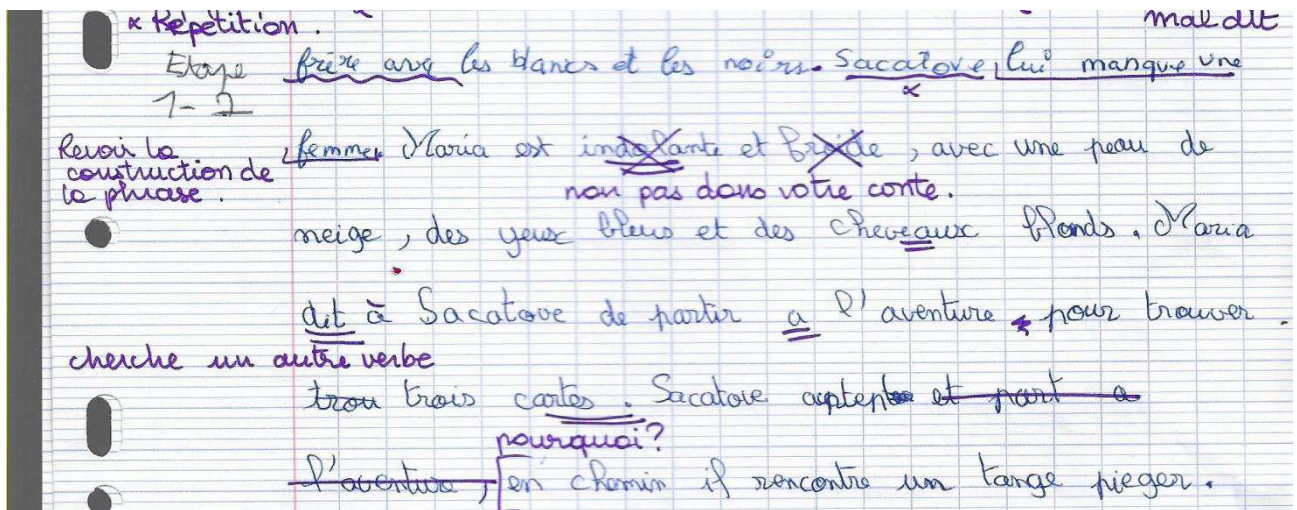 * Répétition. mal dit
Etape frère avq les blancs et les noirs. Sacatove, lui manque une
1-2
Revoir la construction de la phrase. femme, Maria est indolante et froide, avec une peau de
non pas dans votre conte.
neige, des yeux bleus et des cheveaux blonds. Maria
dit à Sacatove de partir a l'aventure pour trouver.
cherche un autre verbe
trou trois cartes. Sacatove et part a
pourquoi?
l'aventure, en chemin il rencontre un tange pieger.